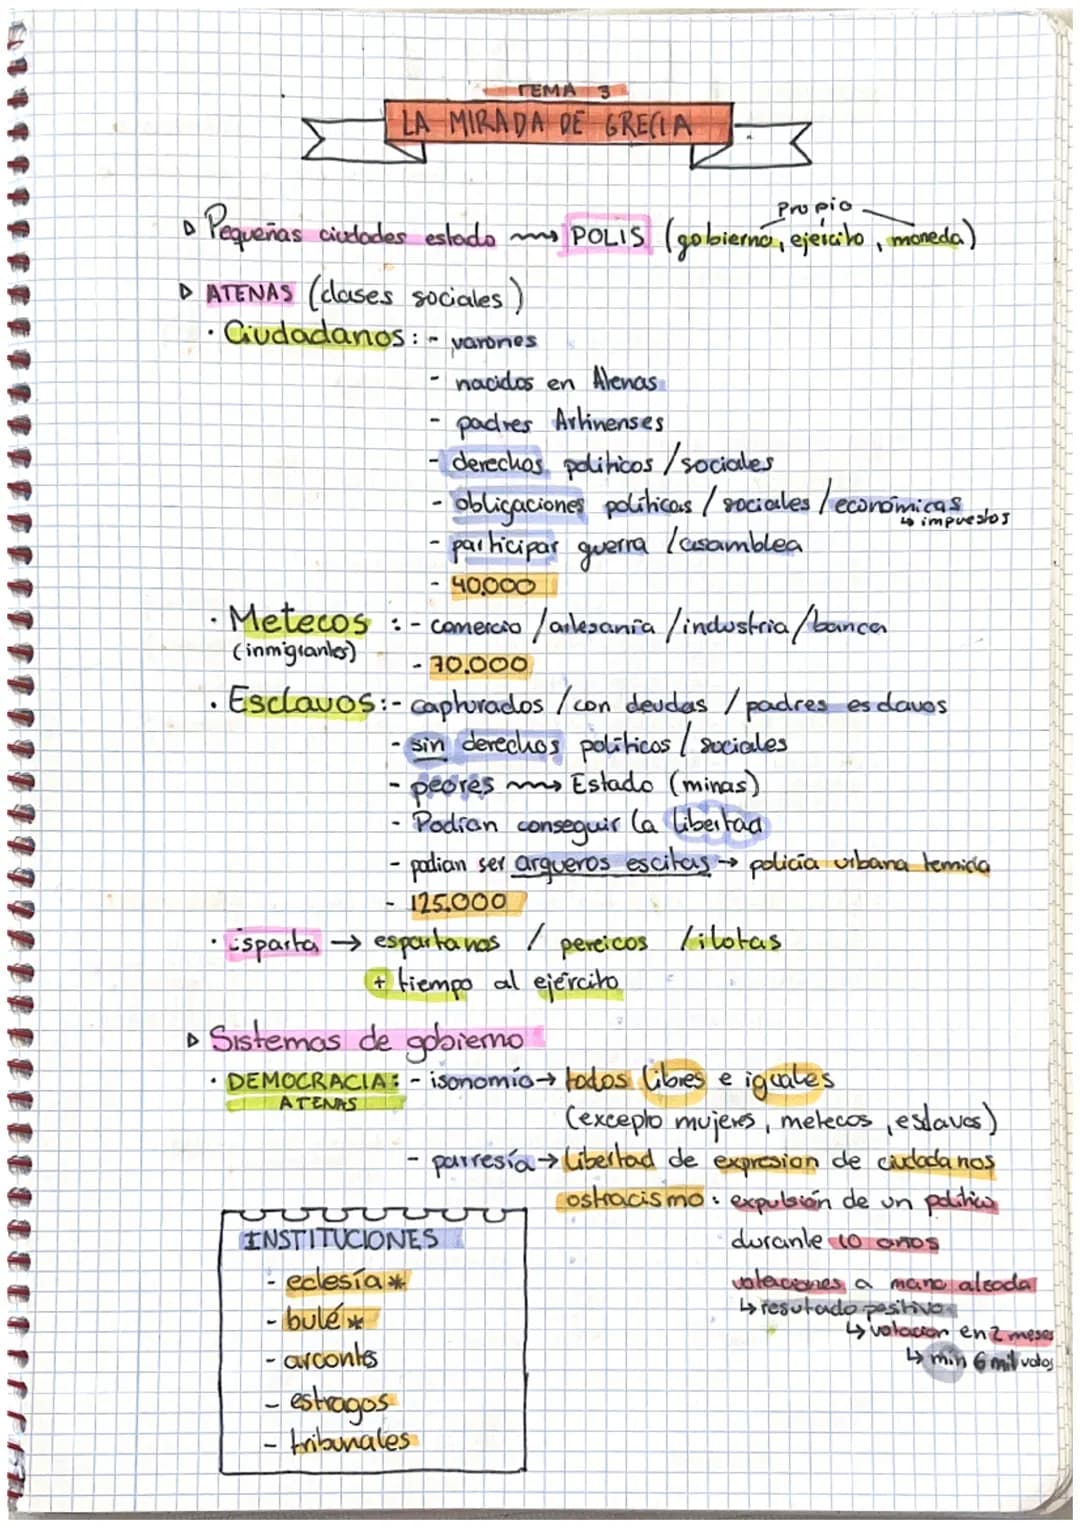 TEMA 3
LA MIRADA DE GRECIA
Propio
▷ Pequeñas ciudades estado → POLIS (gobierno, ejército, moneda)
▷ ATENAS (clases sociales)
· Ciudadanos: - varones
- nacidos en Atenas
- padres Artinenses
- derechos políticos / sociales
- obligaciones políticas / sociales / económicas
↳ impuestos
- participar guerra / asamblea
- 40.000
· Metecos : - comercio / artesanía / industria / banca
(inmigrantes)
- 70.000
· Esclavos: - capturados / con deudas / padres esclavos
- sin derechos políticos / sociales
- peores → Estado (minas)
- Podían conseguir la libertad
- podian ser arqueros escitas → policía urbana temida
- 125.000
· Esparta → espartanos / pereicos / ilotas
+ tiempo al ejército
▷ Sistemas de gobierno
· DEMOCRACIA: - isonomía → todos libres e iguales
ATENAS
(excepto mujeres, metecos, eslavos)
- parresía → libertad de expresion de ciudadanos
ostracismo: expulsión de un político
durante 10 años
votaciones a mano alzada
↳ resutado positivo
↳ votacion en 2 meses
↳ min 6 mil votos
INSTITUCIONES
- eclesía *
- bulé *
- arcontes
- estragos
- tribunales